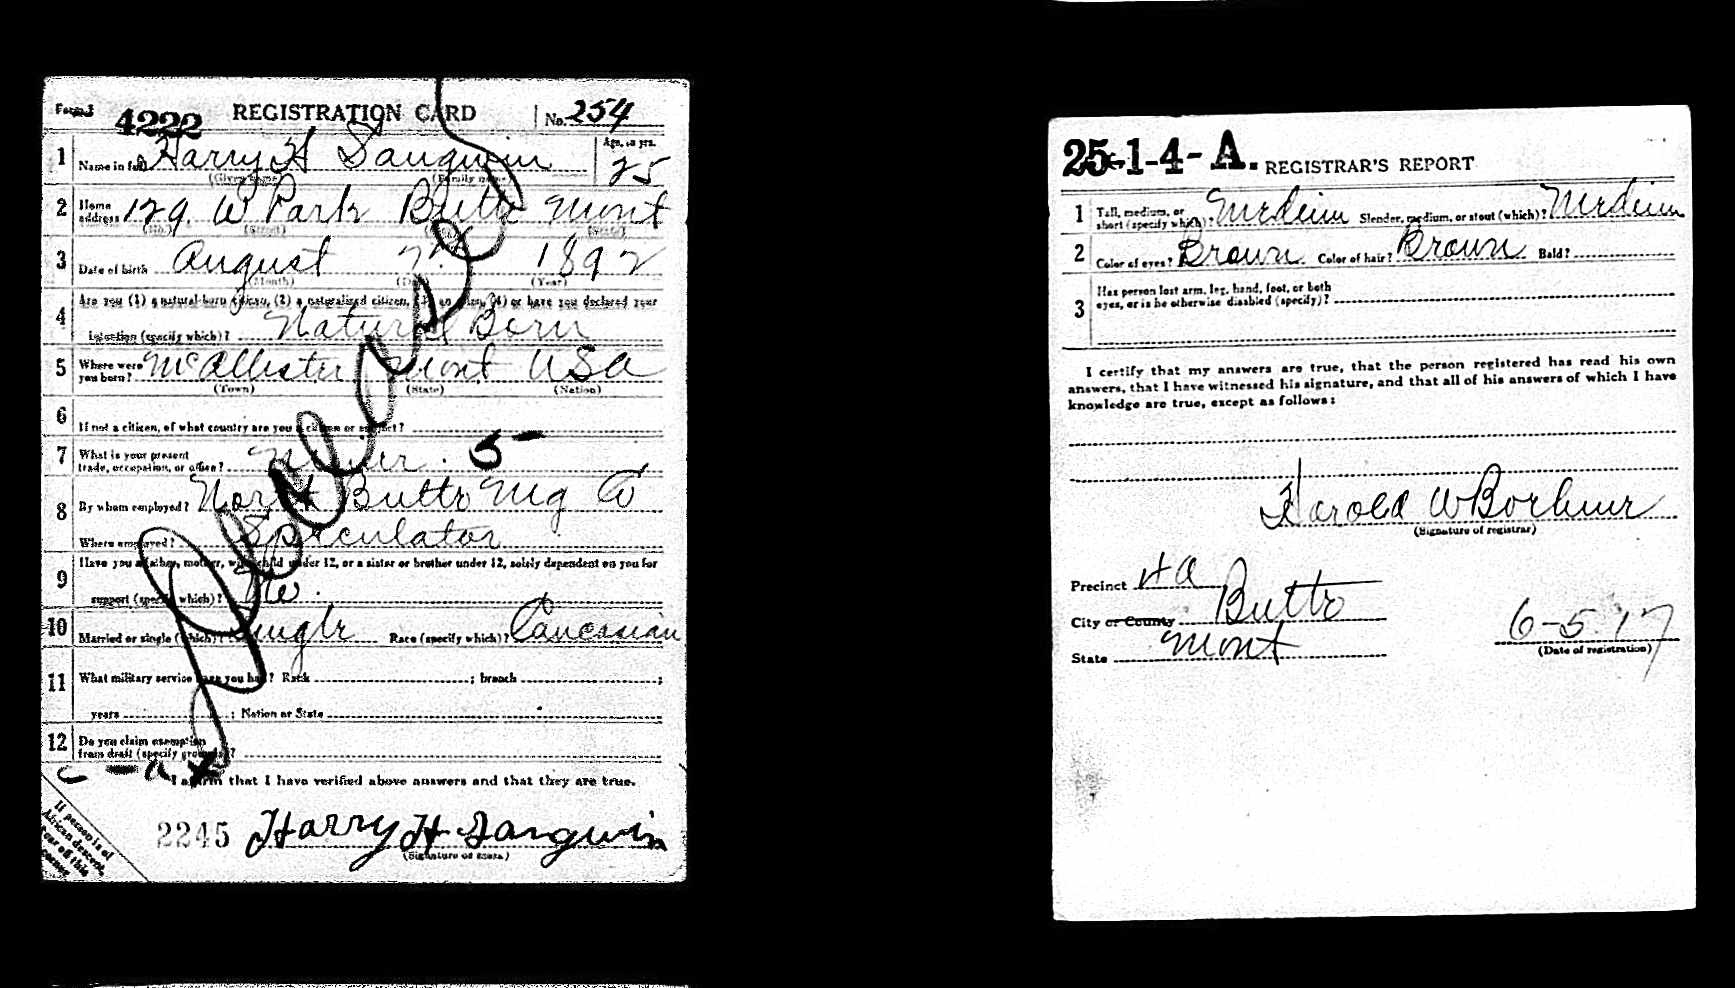 Form 1 4222 REGISTRATION CARD No. 254
1 Name in full Harry H Sanguin Age, in yrs. 25
(Given name) (Family name)
2 Home address 129. W Park Butte Mont
(No.) (Street) (State)
3 Date of birth August 1892
(Month) (Day) (Year)
4 Are you (1) a natural-born citizen, (2) a naturalized citizen, (3) an alien, (4) or have you declared your
intention (specify which)? Natural Born
5 Where were you born? McAllister Mont USA
(Town) (State) (Nation)
6 If not a citizen, of what country are you a citizen or subject?
7 What is your present
trade, occupation, or office? Miner. 5-
8 By whom employed? North Butte Mg Co
Where employed? Speculator
9 Have you a father, mother, wife, child under 12, or a sister or brother under 12, solely dependent on you for
support (specify which)? No.
10 Married or single (which)? Single Race (specify which)? Caucasian
11 What military service have you had? Rank ; branch ;
years ; Nation or State
12 Do you claim exemption
from draft (specify grounds)?
I affirm that I have verified above answers and that they are true.
2245 Harry H Sanguin
(Signature or mark)
If person is of
African descent,
tear off this
corner
Deceased
25-1-4-A. REGISTRAR'S REPORT
1 Tall, medium, or
short (specify which)? Medium Slender, medium, or stout (which)? Medium
2 Color of eyes? Brown Color of hair? Brown Bald?
3 Has person lost arm, leg, hand, foot, or both
eyes, or is he otherwise disabled (specify)?
I certify that my answers are true, that the person registered has read his own
answers, that I have witnessed his signature, and that all of his answers of which I have
knowledge are true, except as follows:
Harold W
(Signature of registrar)
Precinct 4a
City or County Butte
State Mont
6-5-17
(Date of registration)